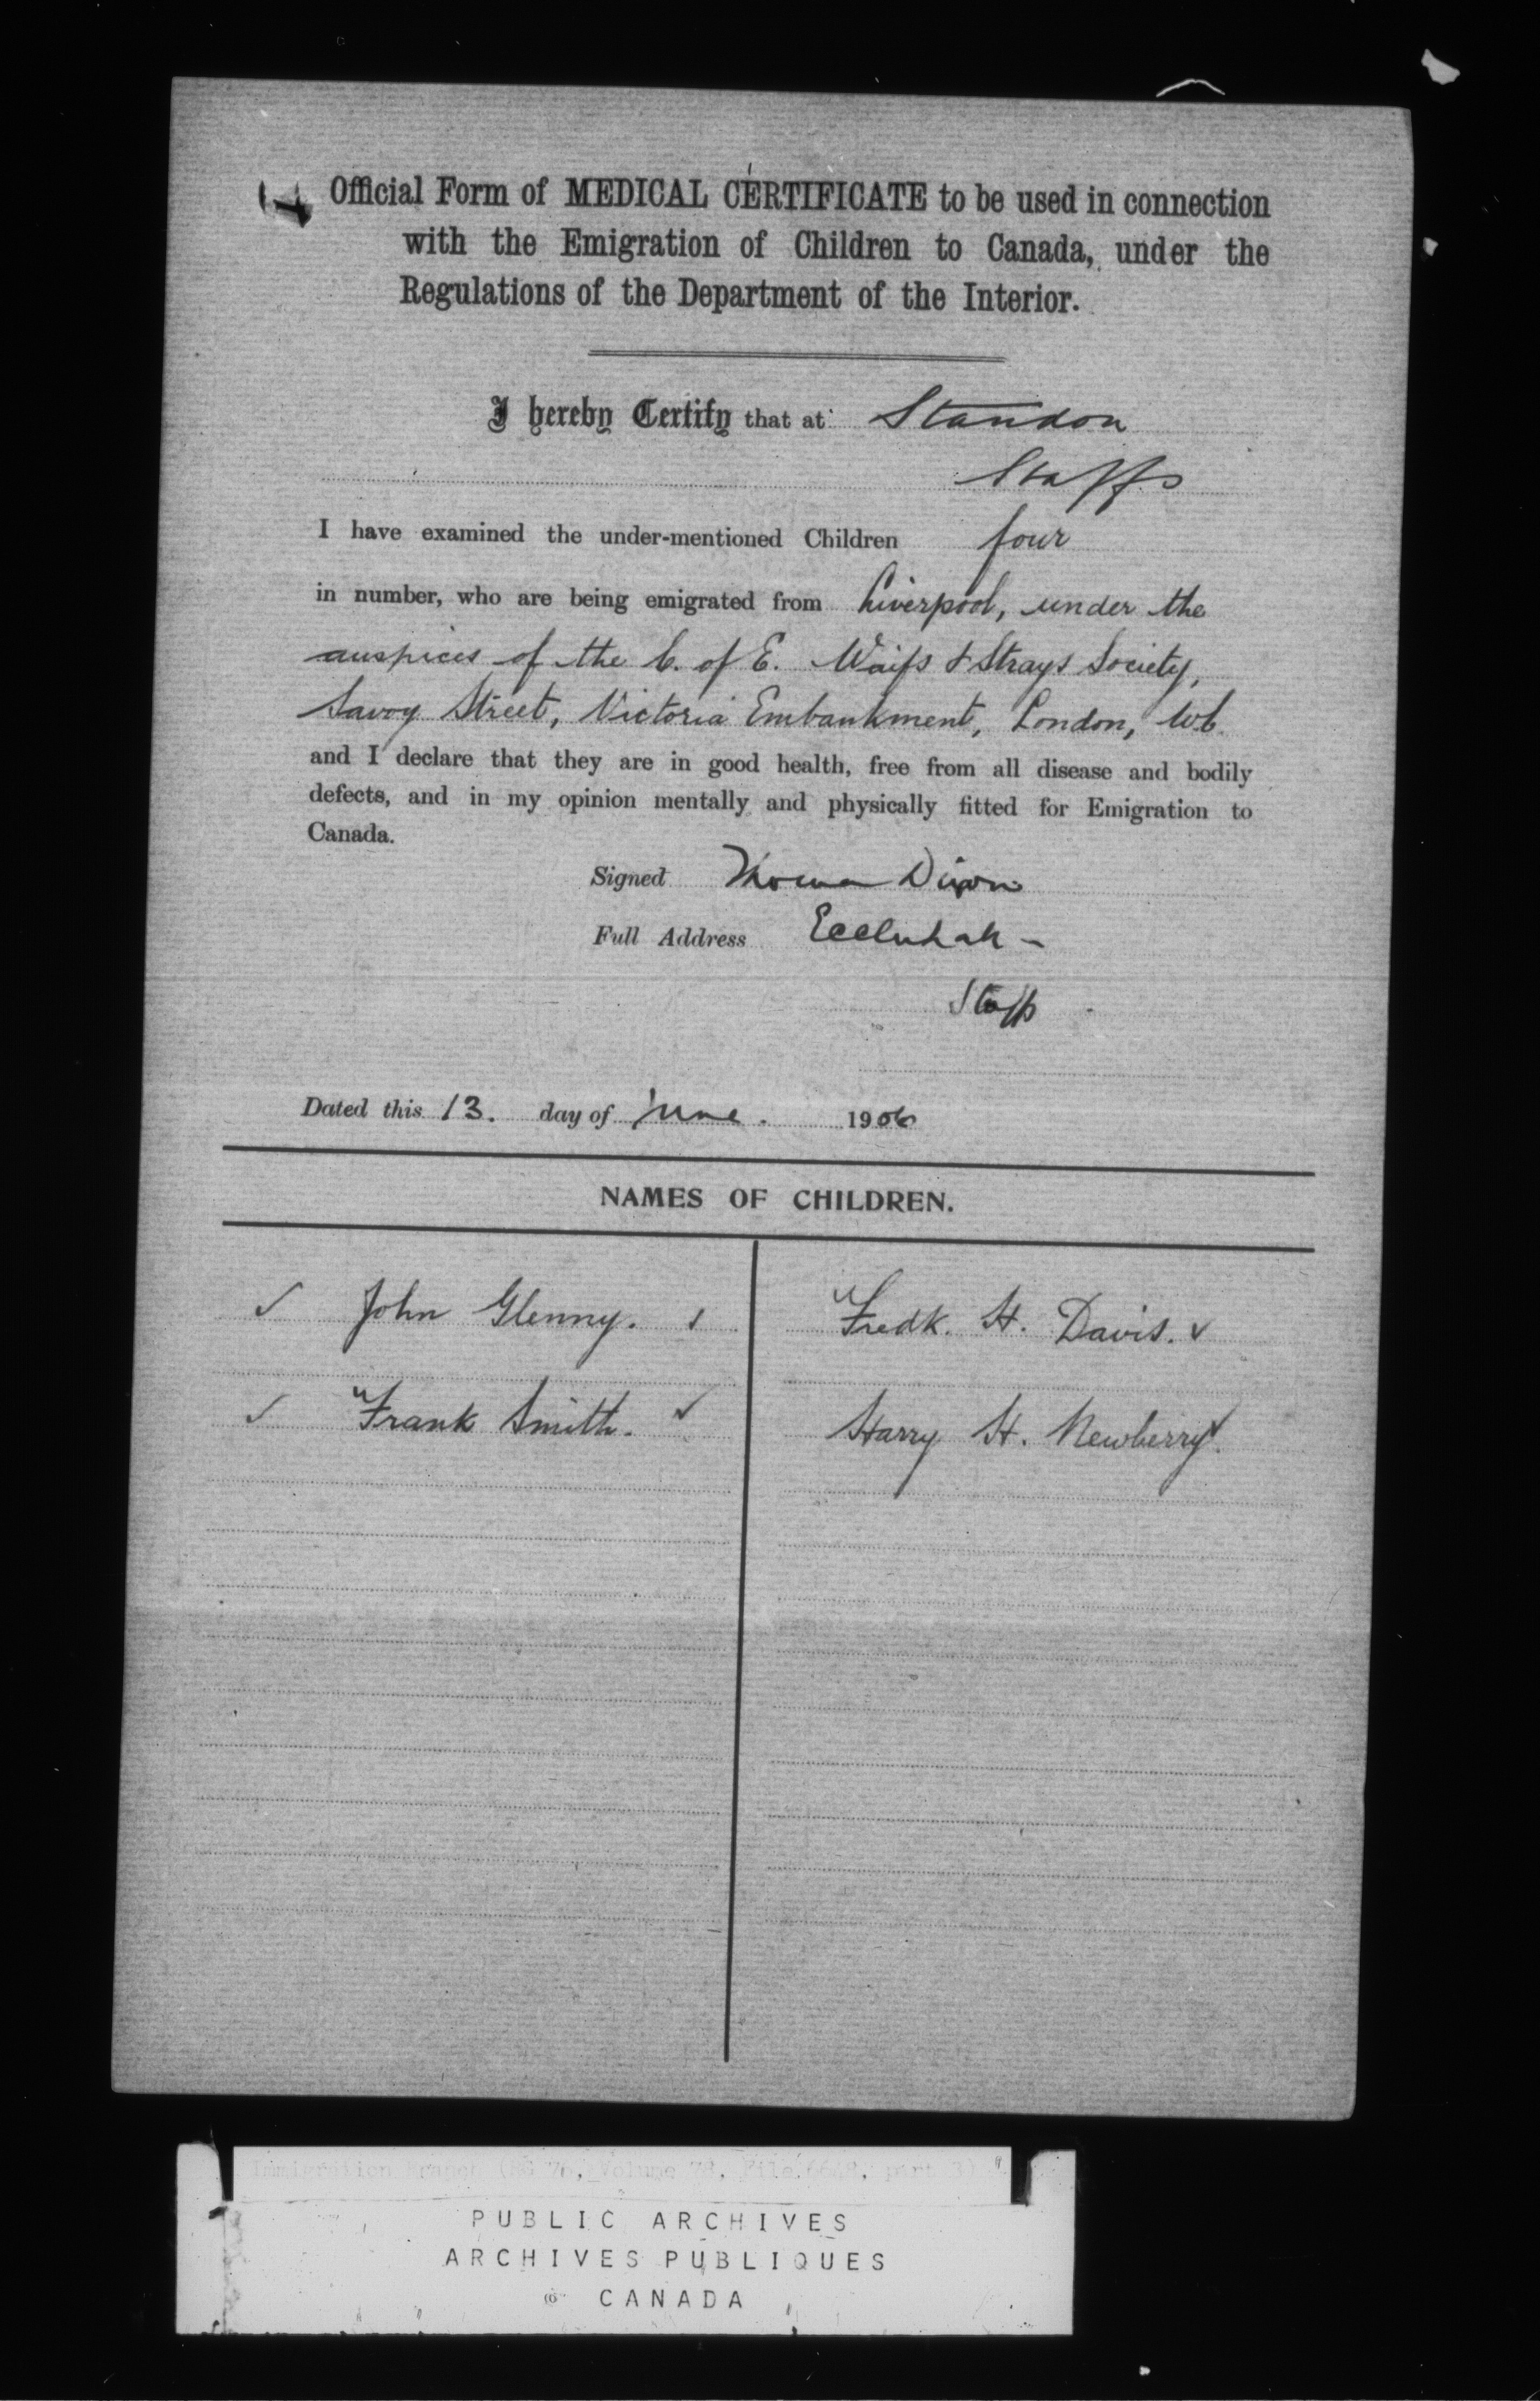 Official Form of MEDICAL CERTIFICATE to be used in connection
with the Emigration of Children to Canada, under the
Regulations of the Department of the Interior.
I hereby Certify that at Standon
Staffs
I have examined the under-mentioned Children four
in number, who are being emigrated from Liverpool, under the
auspices of the C. of E. Waifs & Strays Society,
Savoy Street, Victoria Embankment, London, W.C.
and I declare that they are in good health, free from all disease and bodily
defects, and in my opinion mentally and physically fitted for Emigration to
Canada.
Signed Thomas Dixon
Full Address Eccleshall -
Staffs
Dated this 13. day of June. 1906
NAMES OF CHILDREN.
✓ John Glenny.
Fredk. H. Davis. ✓
✓ Frank Smith. ✓
Harry H. Newberry. ✓
Immigration Branch (RG 76, Volume 78, File 6648, part 3)
PUBLIC ARCHIVES
ARCHIVES PUBLIQUES
CANADA